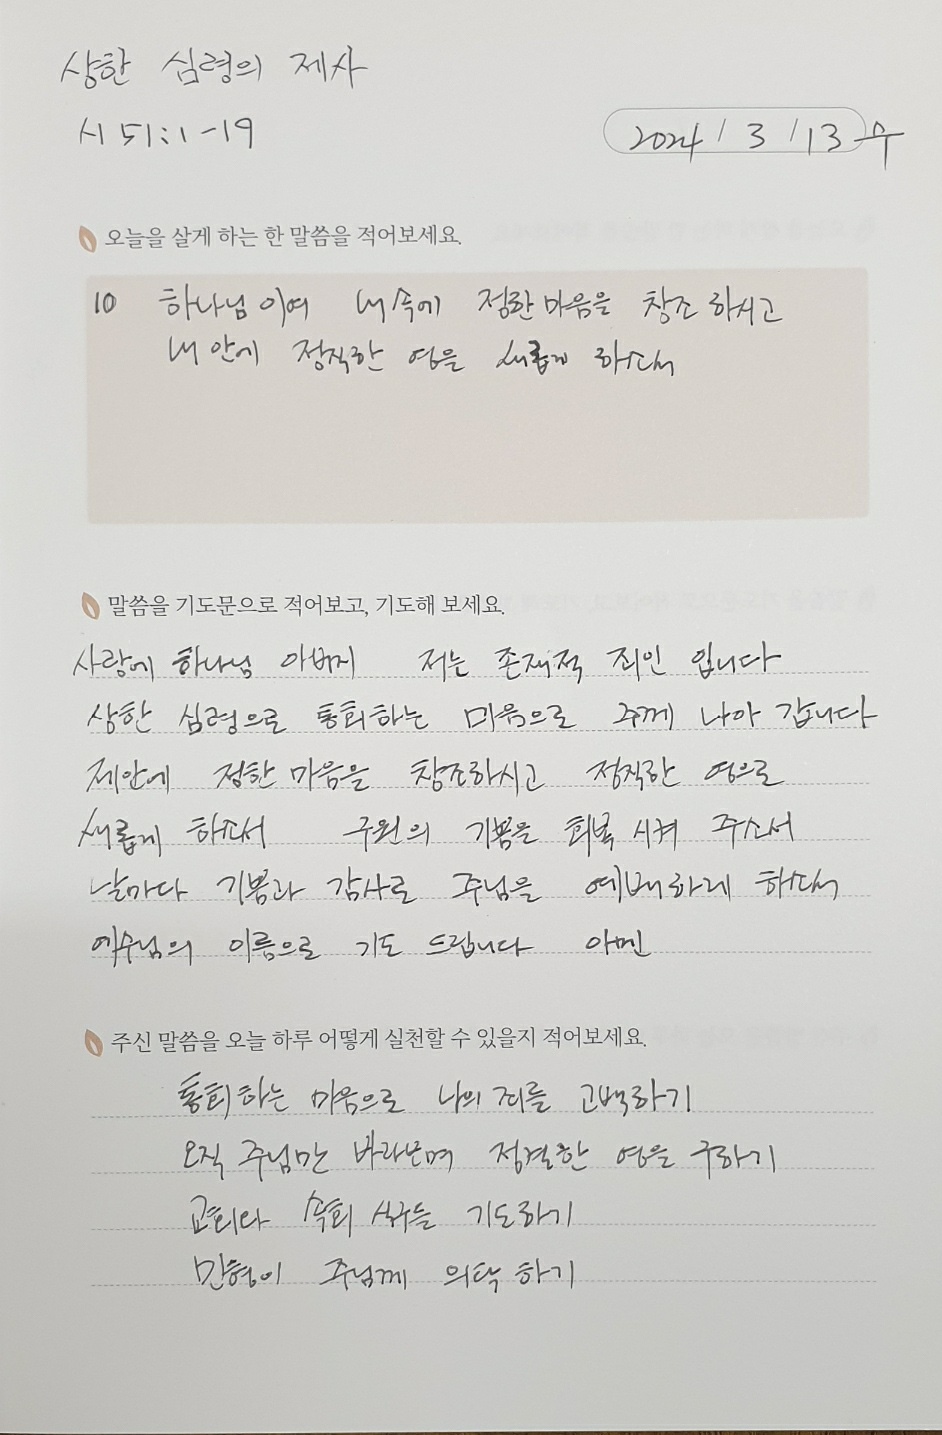 상한 심령의 제사
시 51:1-19
2024 / 3 / 13 수
오늘을 살게 하는 한 말씀을 적어보세요.
10 하나님이여 내 속에 정한 마음을 창조 하시고
내 안에 정직한 영을 새롭게 하소서
말씀을 기도문으로 적어보고, 기도해 보세요.
사랑에 하나님 아버지 저는 존재적 죄인 입니다
상한 심령으로 통회하는 마음으로 주께 나아 갑니다
제안에 정한 마음을 창조하시고 정직한 영으로
새롭게 하소서 구원의 기쁨을 회복 시켜 주소서
날마다 기쁨과 감사로 주님을 예배하게 하소서
예수님의 이름으로 기도 드립니다 아멘
주신 말씀을 오늘 하루 어떻게 실천할 수 있을지 적어보세요.
통회하는 마음으로 나의 죄를 고백하기
오직 주님만 바라보며 정결한 영을 구하기
교회와 속회 식구들 기도하기
민형이 주님께 의탁 하기